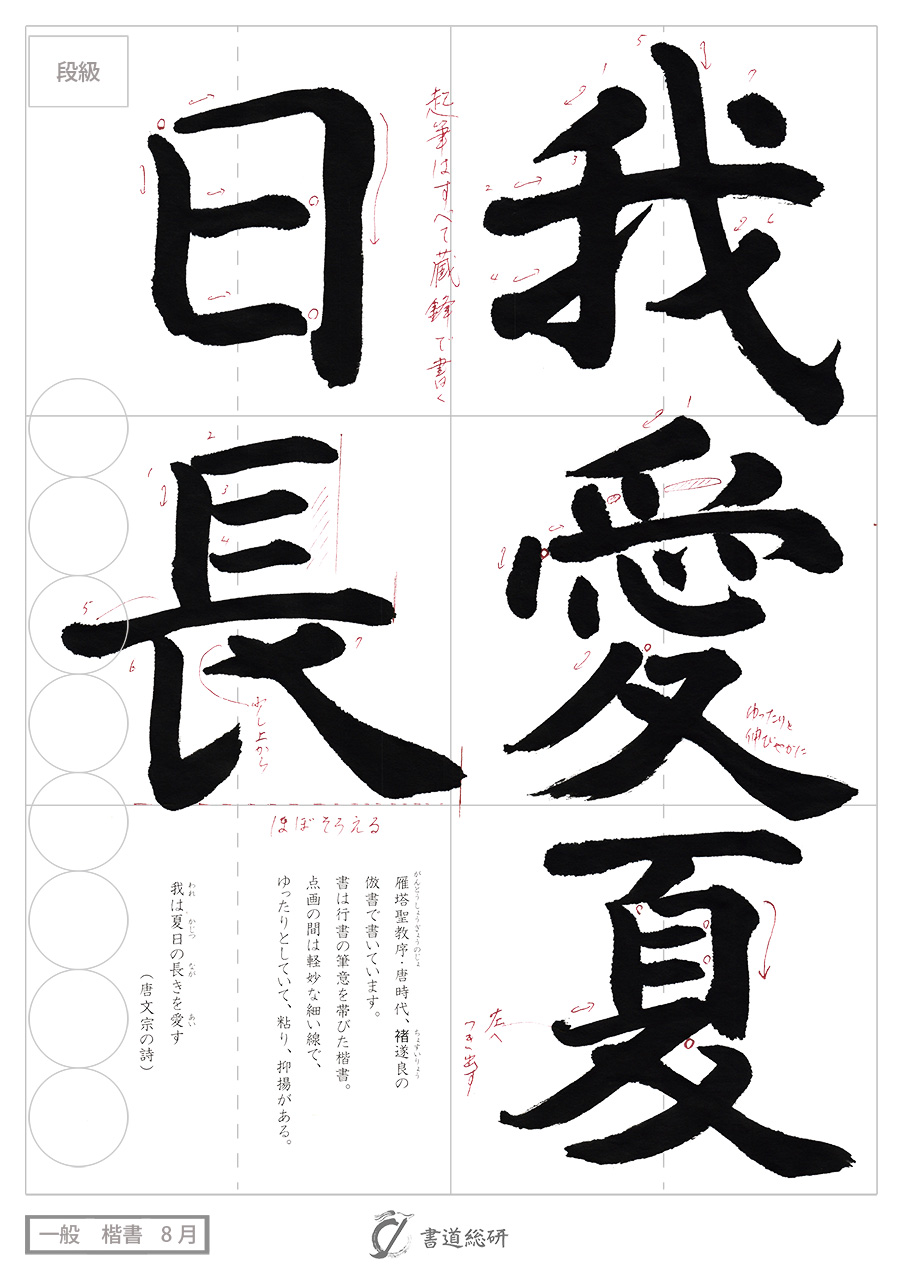 段級
我愛夏
日長
起筆はすべて蔵鋒で書く
ゆったりと
伸びやかに
左へ
つき出す
少し上から
ほぼそろえる
雁塔聖教序・唐時代、褚遂良の
がんとうしょうぎょうのじょ
ちょすいりょう
倣書で書いています。
書は行書の筆意を帯びた楷書。
点画の間は軽妙な細い線で、
ゆったりとしていて、粘り、抑揚がある。
我は夏日の長きを愛す
われ かじつ なが あい
(唐文宗の詩)
一般 楷書 8月
書道総研